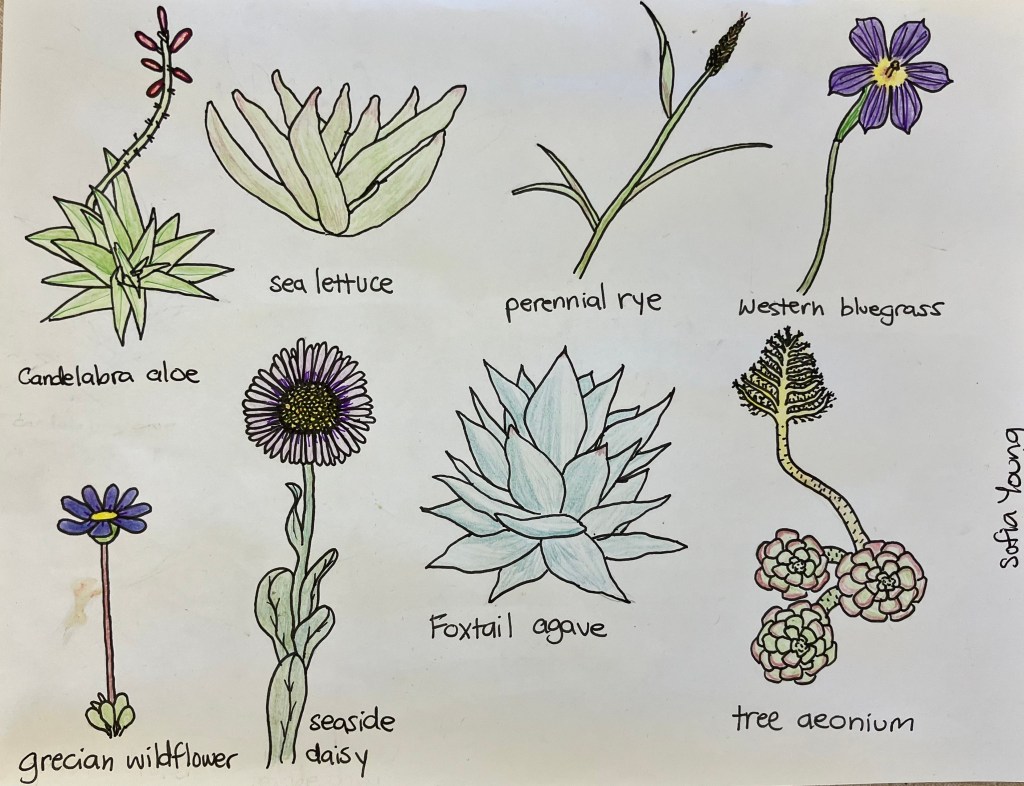 sea lettuce
perennial rye
Western bluegrass
Candelabra aloe
Foxtail agave
Sofia Young
seaside
daisy
tree aeonium
grecian wildflower